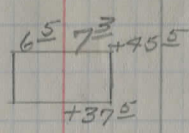 6 5 7 3 +45 5
+37 5